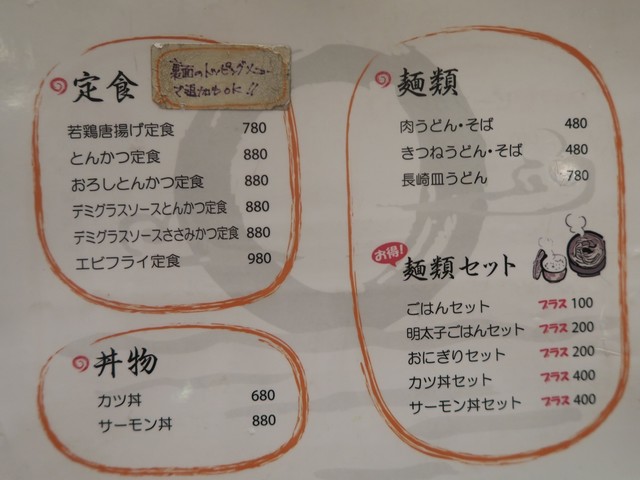 定食
裏面のトッピングメニュー
で追加もOK!!
若鶏唐揚げ定食 780
とんかつ定食 880
おろしとんかつ定食 880
デミグラスソースとんかつ定食 880
デミグラスソースささみかつ定食 880
エビフライ定食 980
丼物
カツ丼 680
サーモン丼 880
麺類
肉うどん・そば 480
きつねうどん・そば 480
長崎皿うどん 780
お得!
麺類セット
ごはんセット プラス100
明太子ごはんセット プラス200
おにぎりセット プラス200
カツ丼セット プラス400
サーモン丼セット プラス400